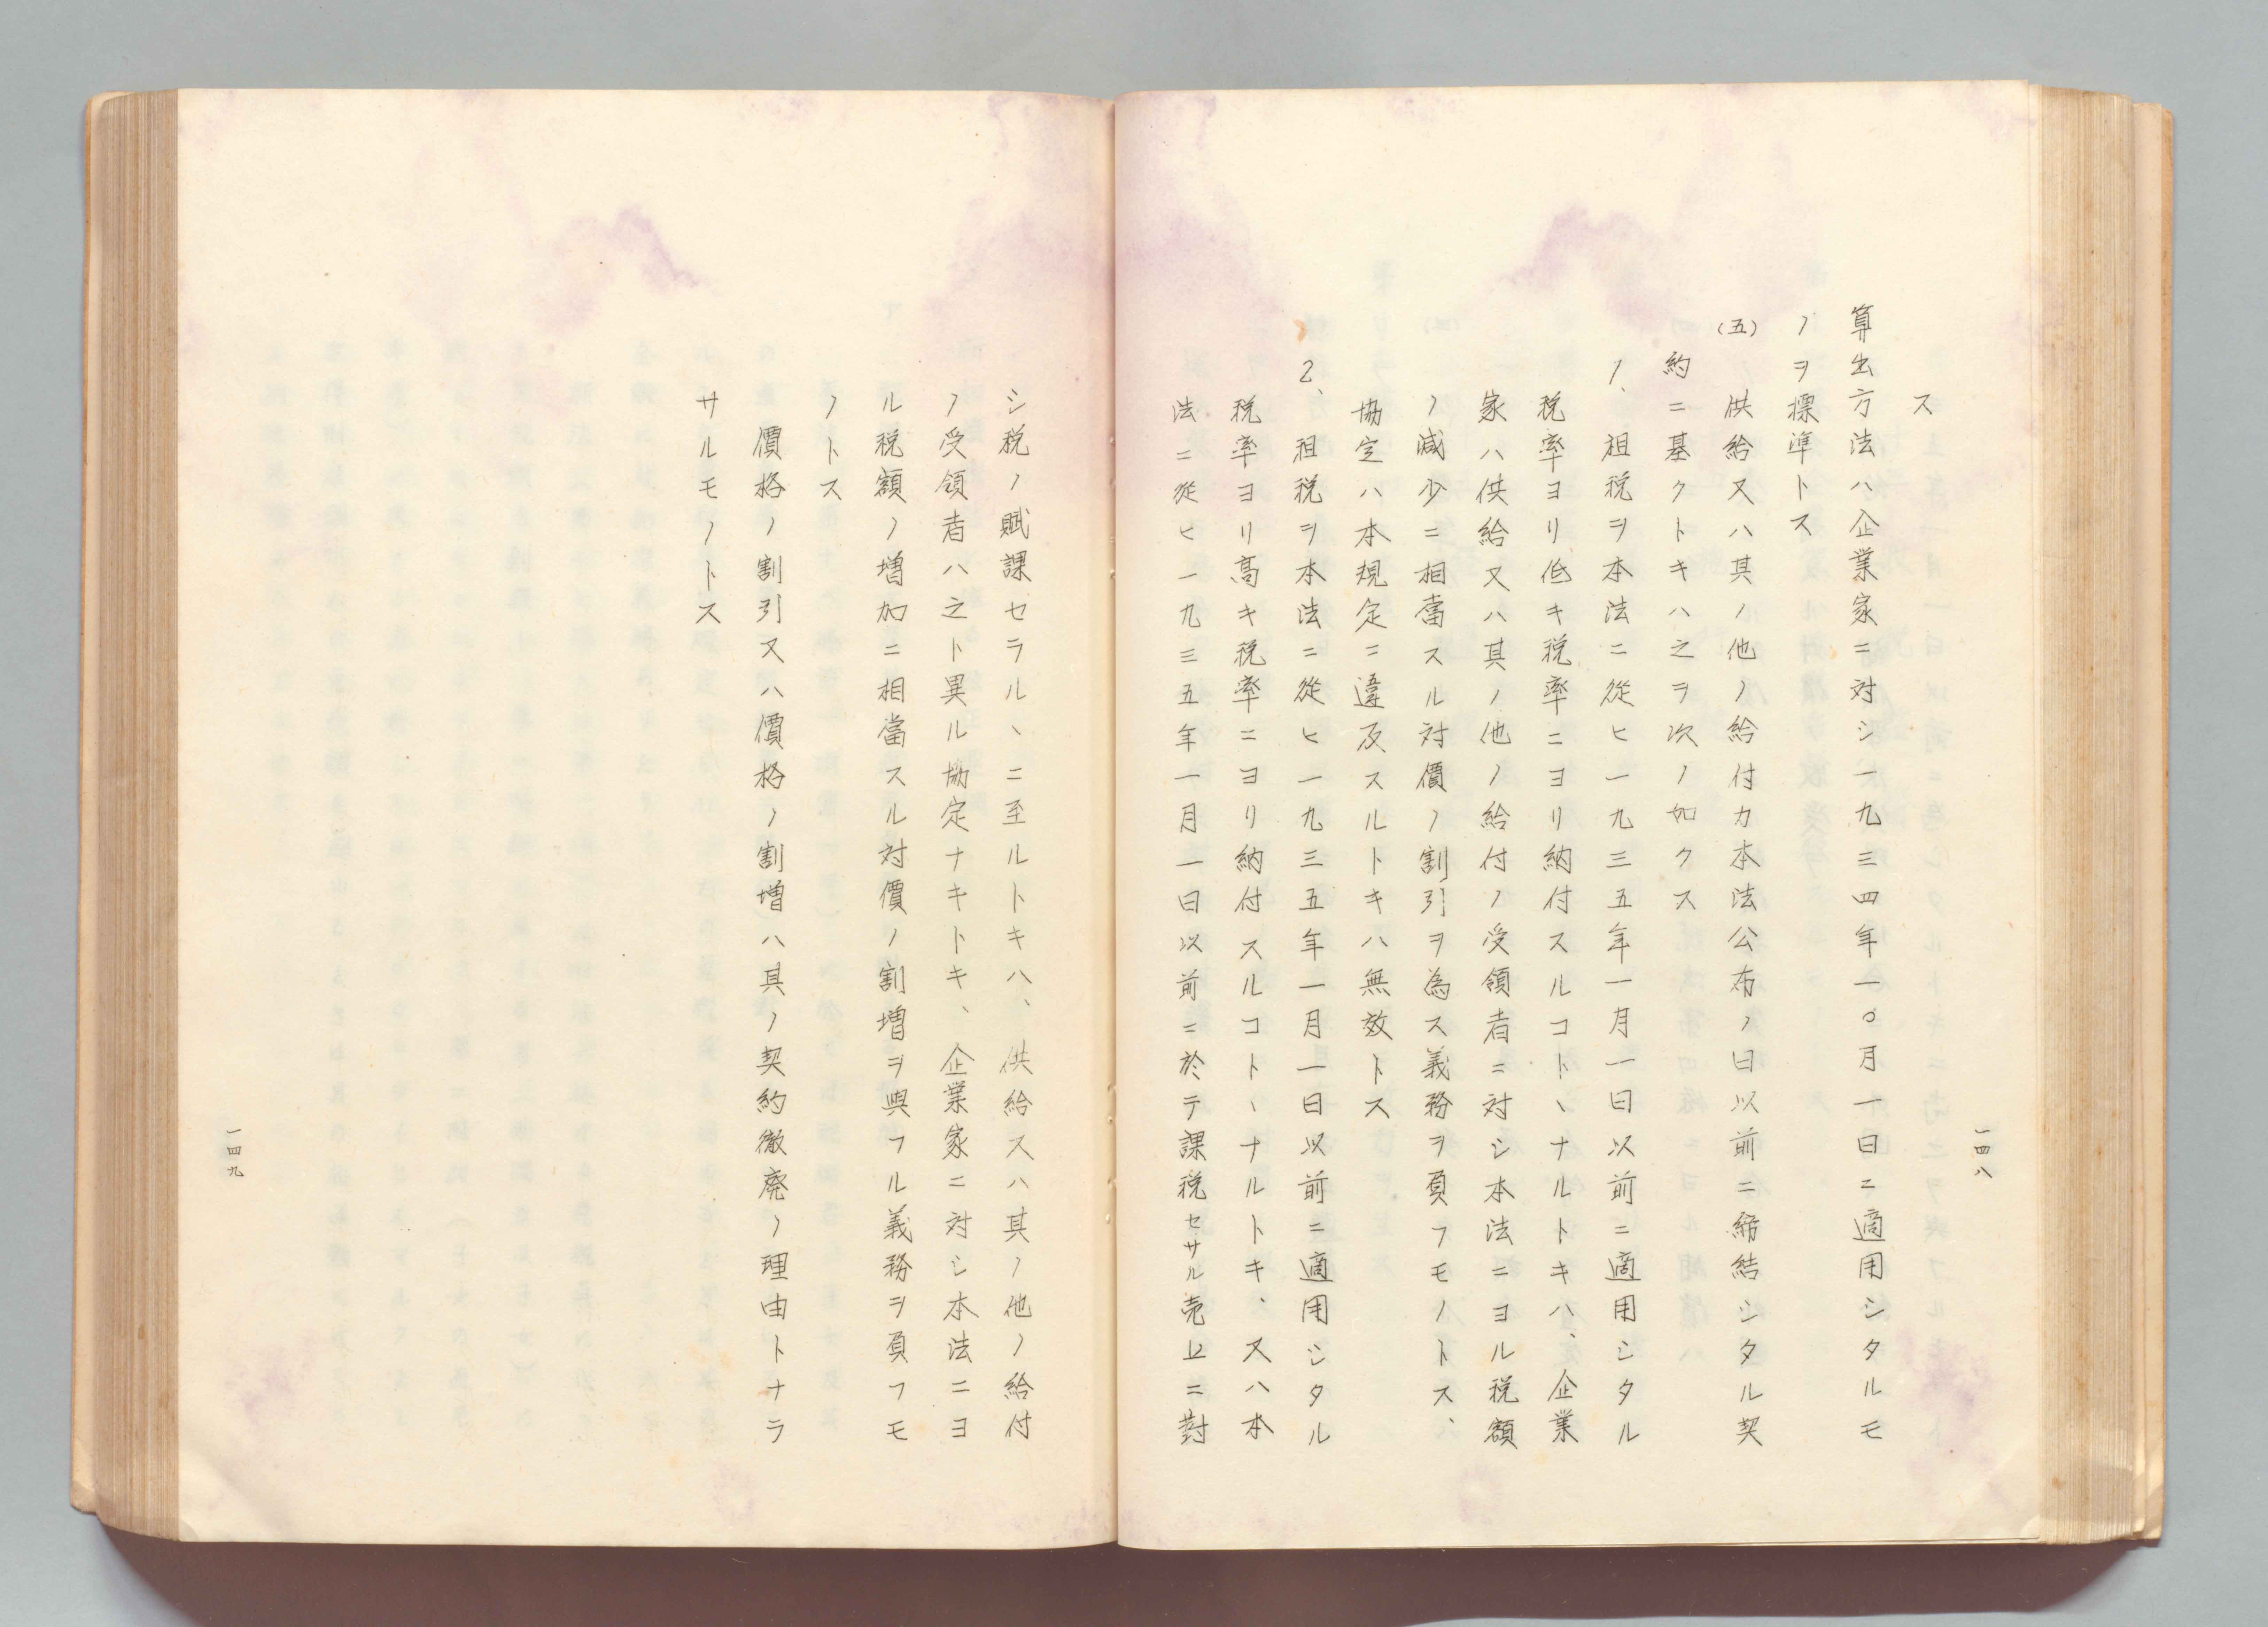 一四八
ス
算出方法ハ企業家ニ対シ一九三四年一〇月一日ニ適用シタルモ
ノヲ標準トス
(五) 供給又ハ其ノ他ノ給付カ本法公布ノ日以前ニ締結シタル契
約ニ基クトキハ之ヲ次ノ如クス
1、租税ヲ本法ニ從ヒ一九三五年一月一日以前ニ適用シタル
税率ヨリ低キ税率ニヨリ納付スルコトヽナルトキハ、企業
家ハ供給又ハ其ノ他ノ給付ノ受領者ニ対シ本法ニヨル税額
ノ減少ニ相當スル対價ノ割引ヲ為ス義務ヲ負フモノトス、
協定ハ本規定ニ違反スルトキハ無效トス
2、租税ヲ本法ニ從ヒ一九三五年一月一日以前ニ適用シタル
税率ヨリ高キ税率ニヨリ納付スルコトヽナルトキ、又ハ本
法ニ從ヒ一九三五年一月一日以前ニ於テ課税セサル売上ニ對
シ税ノ賦課セラルヽニ至ルトキハ、供給又ハ其ノ他ノ給付
ノ受領者ハ之ト異ル協定ナキトキ、企業家ニ対シ本法ニヨ
ル税額ノ増加ニ相當スル対價ノ割増ヲ與フル義務ヲ負フモ
ノトス
價格ノ割引又ハ價格ノ割増ハ其ノ契約撤廃ノ理由トナラ
サルモノトス
一四九